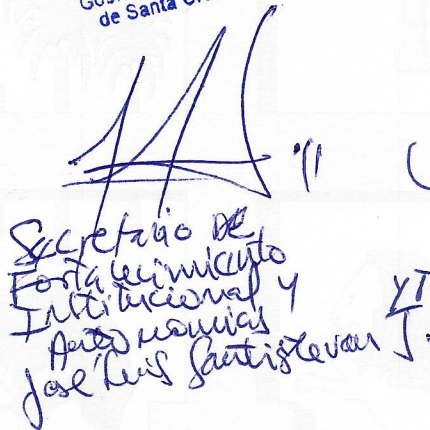 de Santa
Secretario DE
Fortalecimiento
Institucional y
Autonomias
José Luis Santistevan